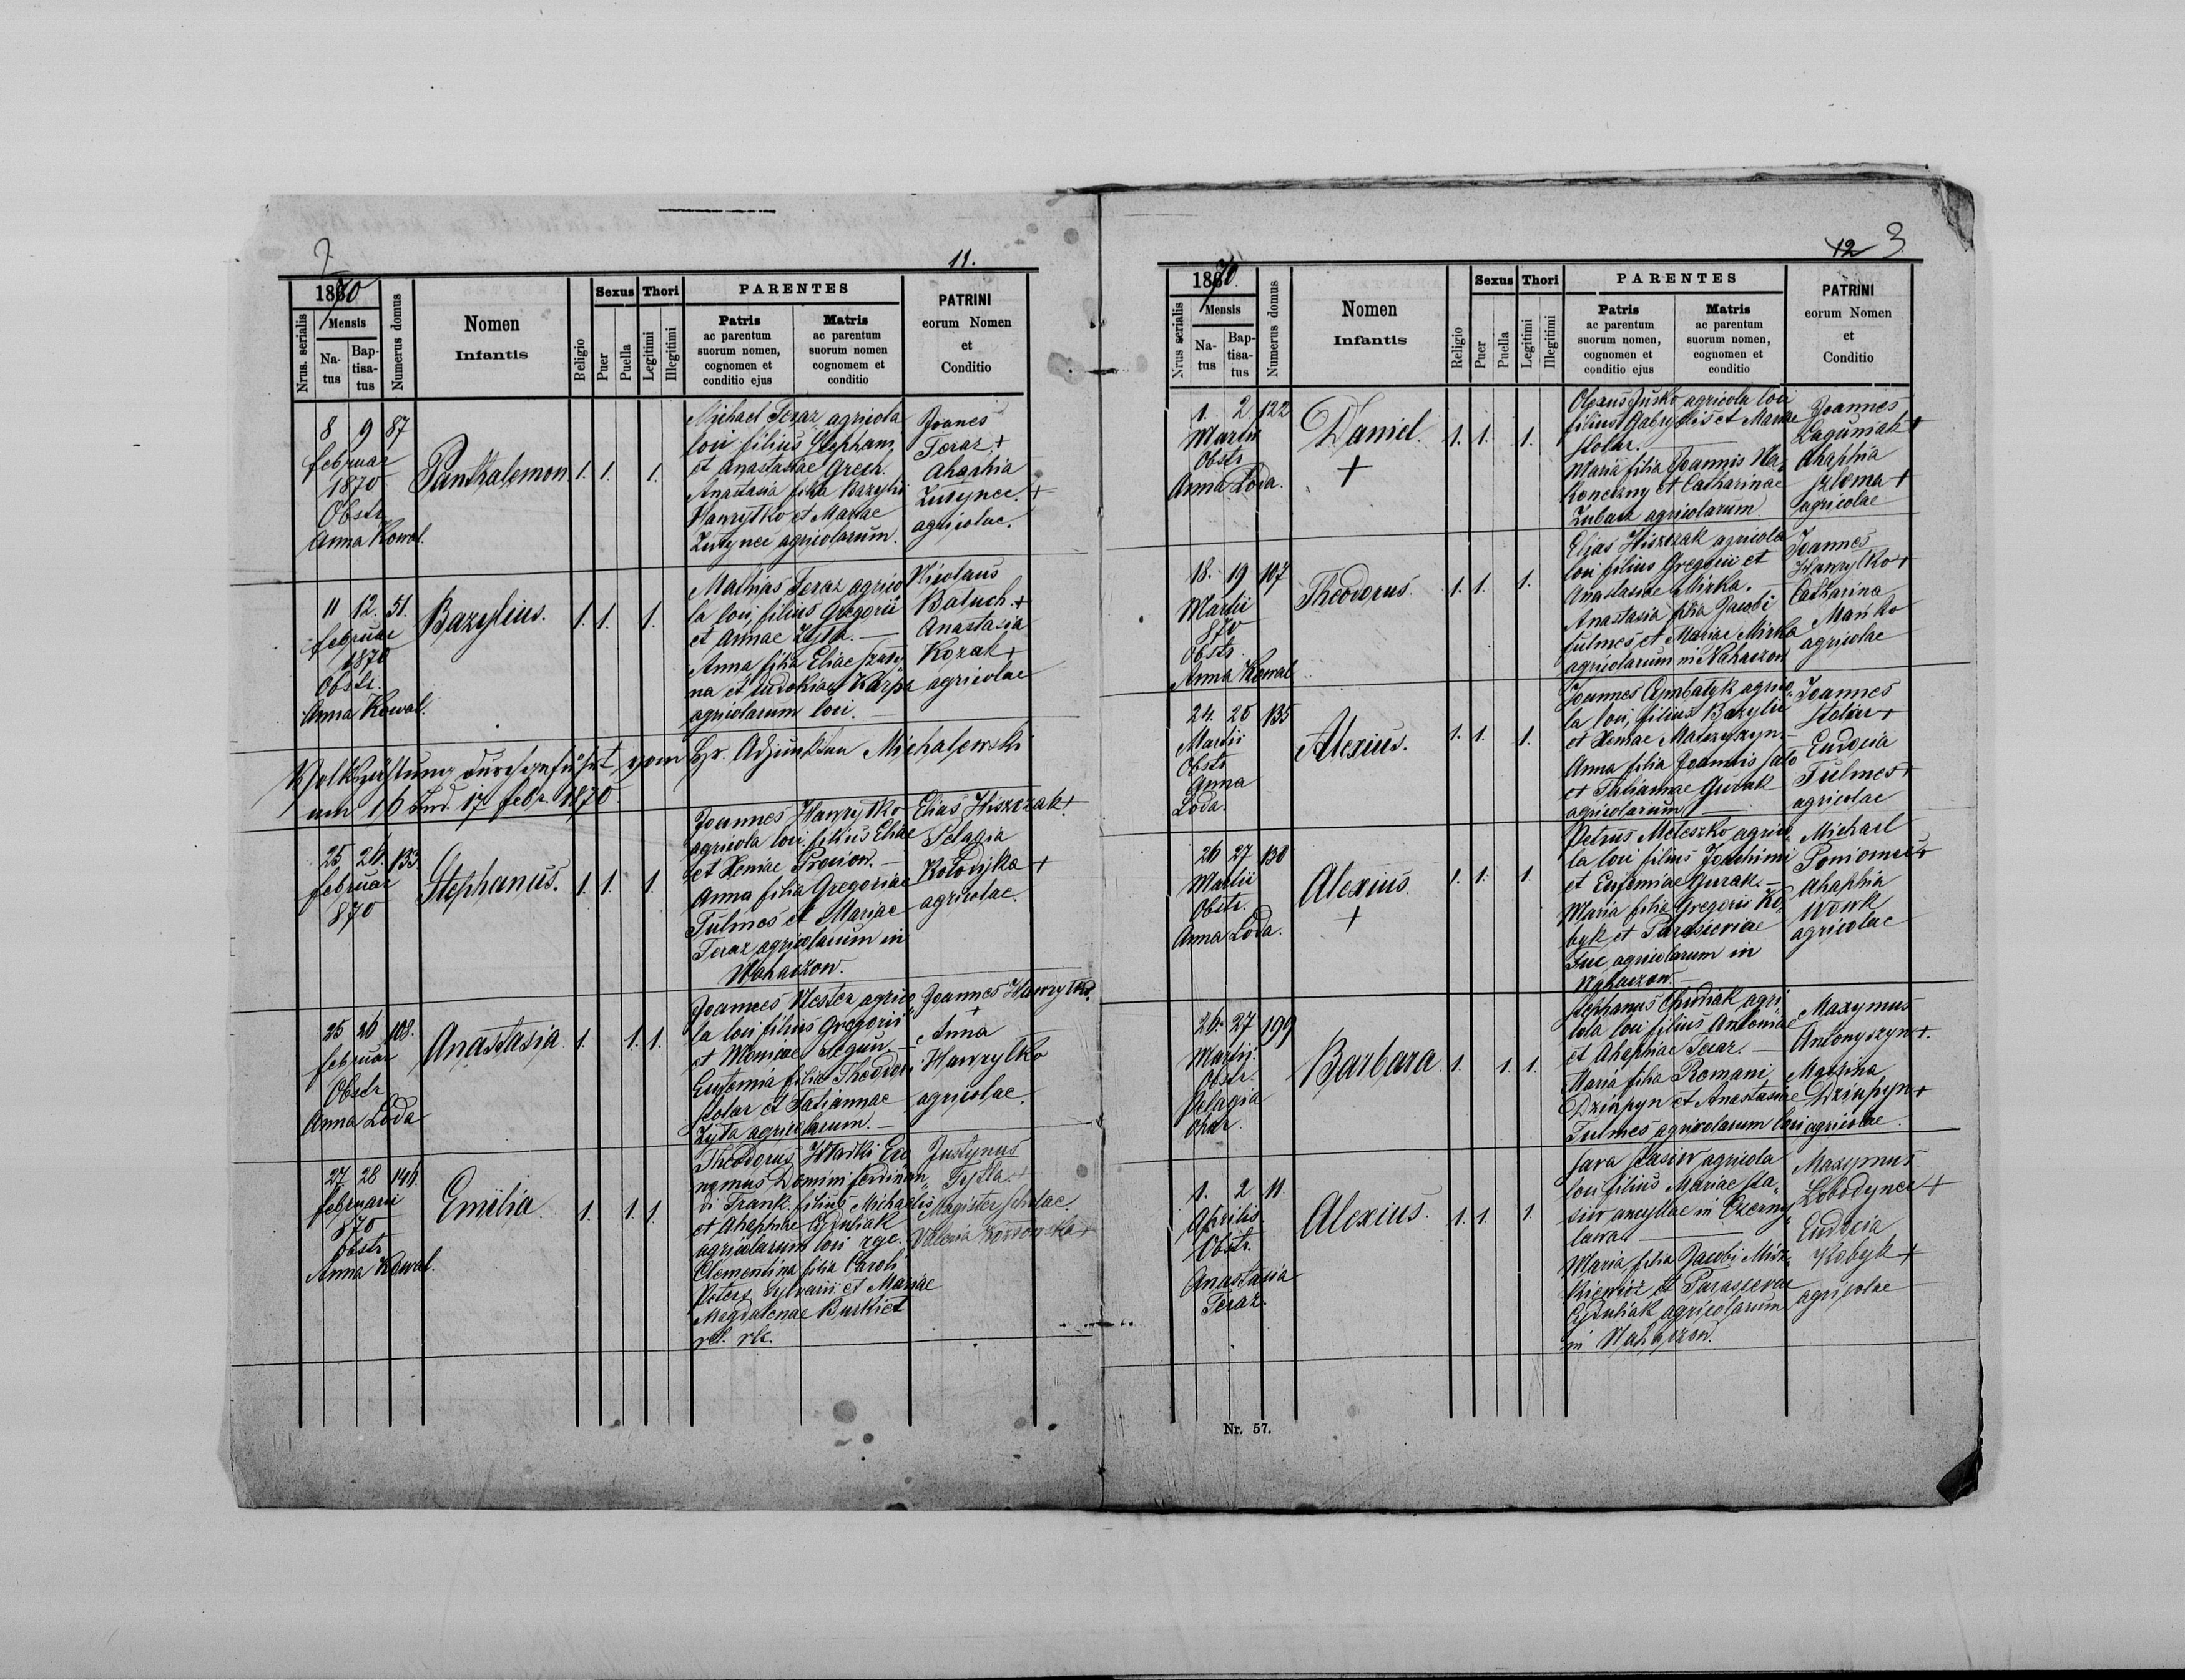 2
11.
1870
Nrus. serialis
Mensis
Na-
tus
Bap-
tisa-
tus
Numerus domus
Nomen
Infantis
Religio
Sexus
Puer
Puella
Thori
Legitimi
Illegitimi
PARENTES
Patris
ac parentum
suorum nomen,
cognomen et
conditio ejus
Matris
ac parentum
suorum nomen
cognomem et
conditio
PATRINI
eorum Nomen
et
Conditio
8 9 87
februar
1870
Obstr
Anna Kowal.
Panthalemon
1. 1. 1.
Michael Teraz agricola
loci filius Stephani
et Anastasiae Grech.
Anastasia filia Bazylii
Hawrytko et Mariae
Zutynec agricolarum.
Joanes
Teraz +
Ahaphia
Zutynec. +
agricolae.
11 12. 51.
februar
1870
Obstr.
Anna Kowal.
Bazylius.
1. 1. 1.
Mathias Teraz agrico
la loci, filius Gregorii
et Annae Zyta. —
Anna filia Eliae
na et Eudokiae Karpa
agricolarum loci. —
Nicolaus
Batuch +
Anastasia
Kozak +
agricolae
Volkszählung durchgeführt vom Hr. Adjunkten Michalewski
am 16 und 17 febr. 1870.
25 26. 133
februar
870
Stephanus.
1. 1. 1.
Joannes Hawrytko
agricola loci filius Eliae
et Xeniae Prociow. —
Anna filia Gregoriae
Tulmes et Mariae
Teraz agricolarum in
Nahaczow.
Elias Hiszczak +
Pelagia
Kotodyka +
agricolae.
25 26 108.
februar
Obstr
Anna Loda
Anastasia
1. 1. 1.
Joannes Nester agrico
la loci filius Gregorii
et Monicae Segun —
Eufemia filia Theodori
Stolar et Tatiannae
Zyta agricolarum. —
Joannes Hawrytko
+
Anna
Hawrytko
agricolae.
27 28 141.
februarii
870
Obstr
Anna Kowal.
Emilia.
1. 1. 1.
Theodorus Hladki
nomus Domini ferdinan
di Trank. filius Michaelis
et Ahaphiae Cyduliak
agricolarum loci rgc.
Clementina filia Caroli
Peters Sylvarii et Mariae
Magdalenae Burkiet
rel. rlc.
Justynus
Tytla +
Magister scholae.
Valeria Kozlowska +
12 3
1870.
Nrus serialis
Mensis
Na-
tus
Bap-
tisa-
tus
Numerus domus
Nomen
Infantis
Religio
Sexus
Puer
Puella
Thori
Legitimi
Illegitimi
PARENTES
Patris
ac parentum
suorum nomen,
cognomen et
conditio ejus
Matris
ac parentum
suorum nomen,
cognomen et
conditio
PATRINI
eorum Nomen
et
Conditio
1. 2 122
Martii
Obstr
Anna Loda.
Daniel.
+
1. 1. 1.
Olexus Jusko agricola loci
filius Gabryelis et Mariae
Stolar.
Maria filia Joannis Na
koneczny et Catharinae
Zubacz agricolarum
Joannes
Laguniak +
Ahaphia
+
agricolae
18. 19 107
Martii
870
Obstr.
Anna Kowal
Theodorus.
1. 1. 1.
Elias Hiszczak agricola
loci filius Gregorii et
Anastasiae Mirka. —
Anastasia filia Jacobi
Tulmes et Mariae Mirka
agricolarum in Nahaczow
Joannes
Hawrytko +
Catharina
Manko
agricolae
24. 25 135
Martii
Obstr
Anna
Loda.
Alexius.
1. 1. 1.
Joannes Cymbatyk agrico
la loci, filius Bazylii
et Xeniae Matczyszyn. —
Anna filia Joannis
et Tatiannae Gurak
agricolarum
Joannes
Stolar +
Eudocia
Tulmes +
agricolae
26 27 130
Martii
Obstr.
Anna Loda.
Alexius.
+
1. 1. 1.
Petrus Meleszko agrico
la loci filius Joachimi
et Eufemiae Gurak. —
Maria filia Gregorii Ko
byk et Parasceviae
Tuc agricolarum in
Nahaczow. —
Michael
+
Ahaphia
Wowk
agricolae
26. 27 199
Martii
Obstr.
Pelagia
Barbara
1. 1. 1.
Stephanus Chudiak agri
cola loci filius Antonii
et Ahaphiae Teraz. —
Maria filia Romani
Dziupyn et Anastasiae
Tulmes agricolarum loci
Maxymus
Antonyszyn +
Maxima
Dziupyn +
agricolae
1. 2 11.
Aprilis.
Obstr.
Anastasia
Teraz.
Alexius.
1. 1. 1.
Sava Stasiw agricola
loci filius Mariae Sta
siw ancyllae in Czerny
lawa
Maria filia Jacobi Misz
kiewicz et Parascevae
Cyduliak agricolarum
in Nahaczow.
Maxymus
Lobodynec +
Eudocia
Kobyk +
agricolae
Nr. 57.